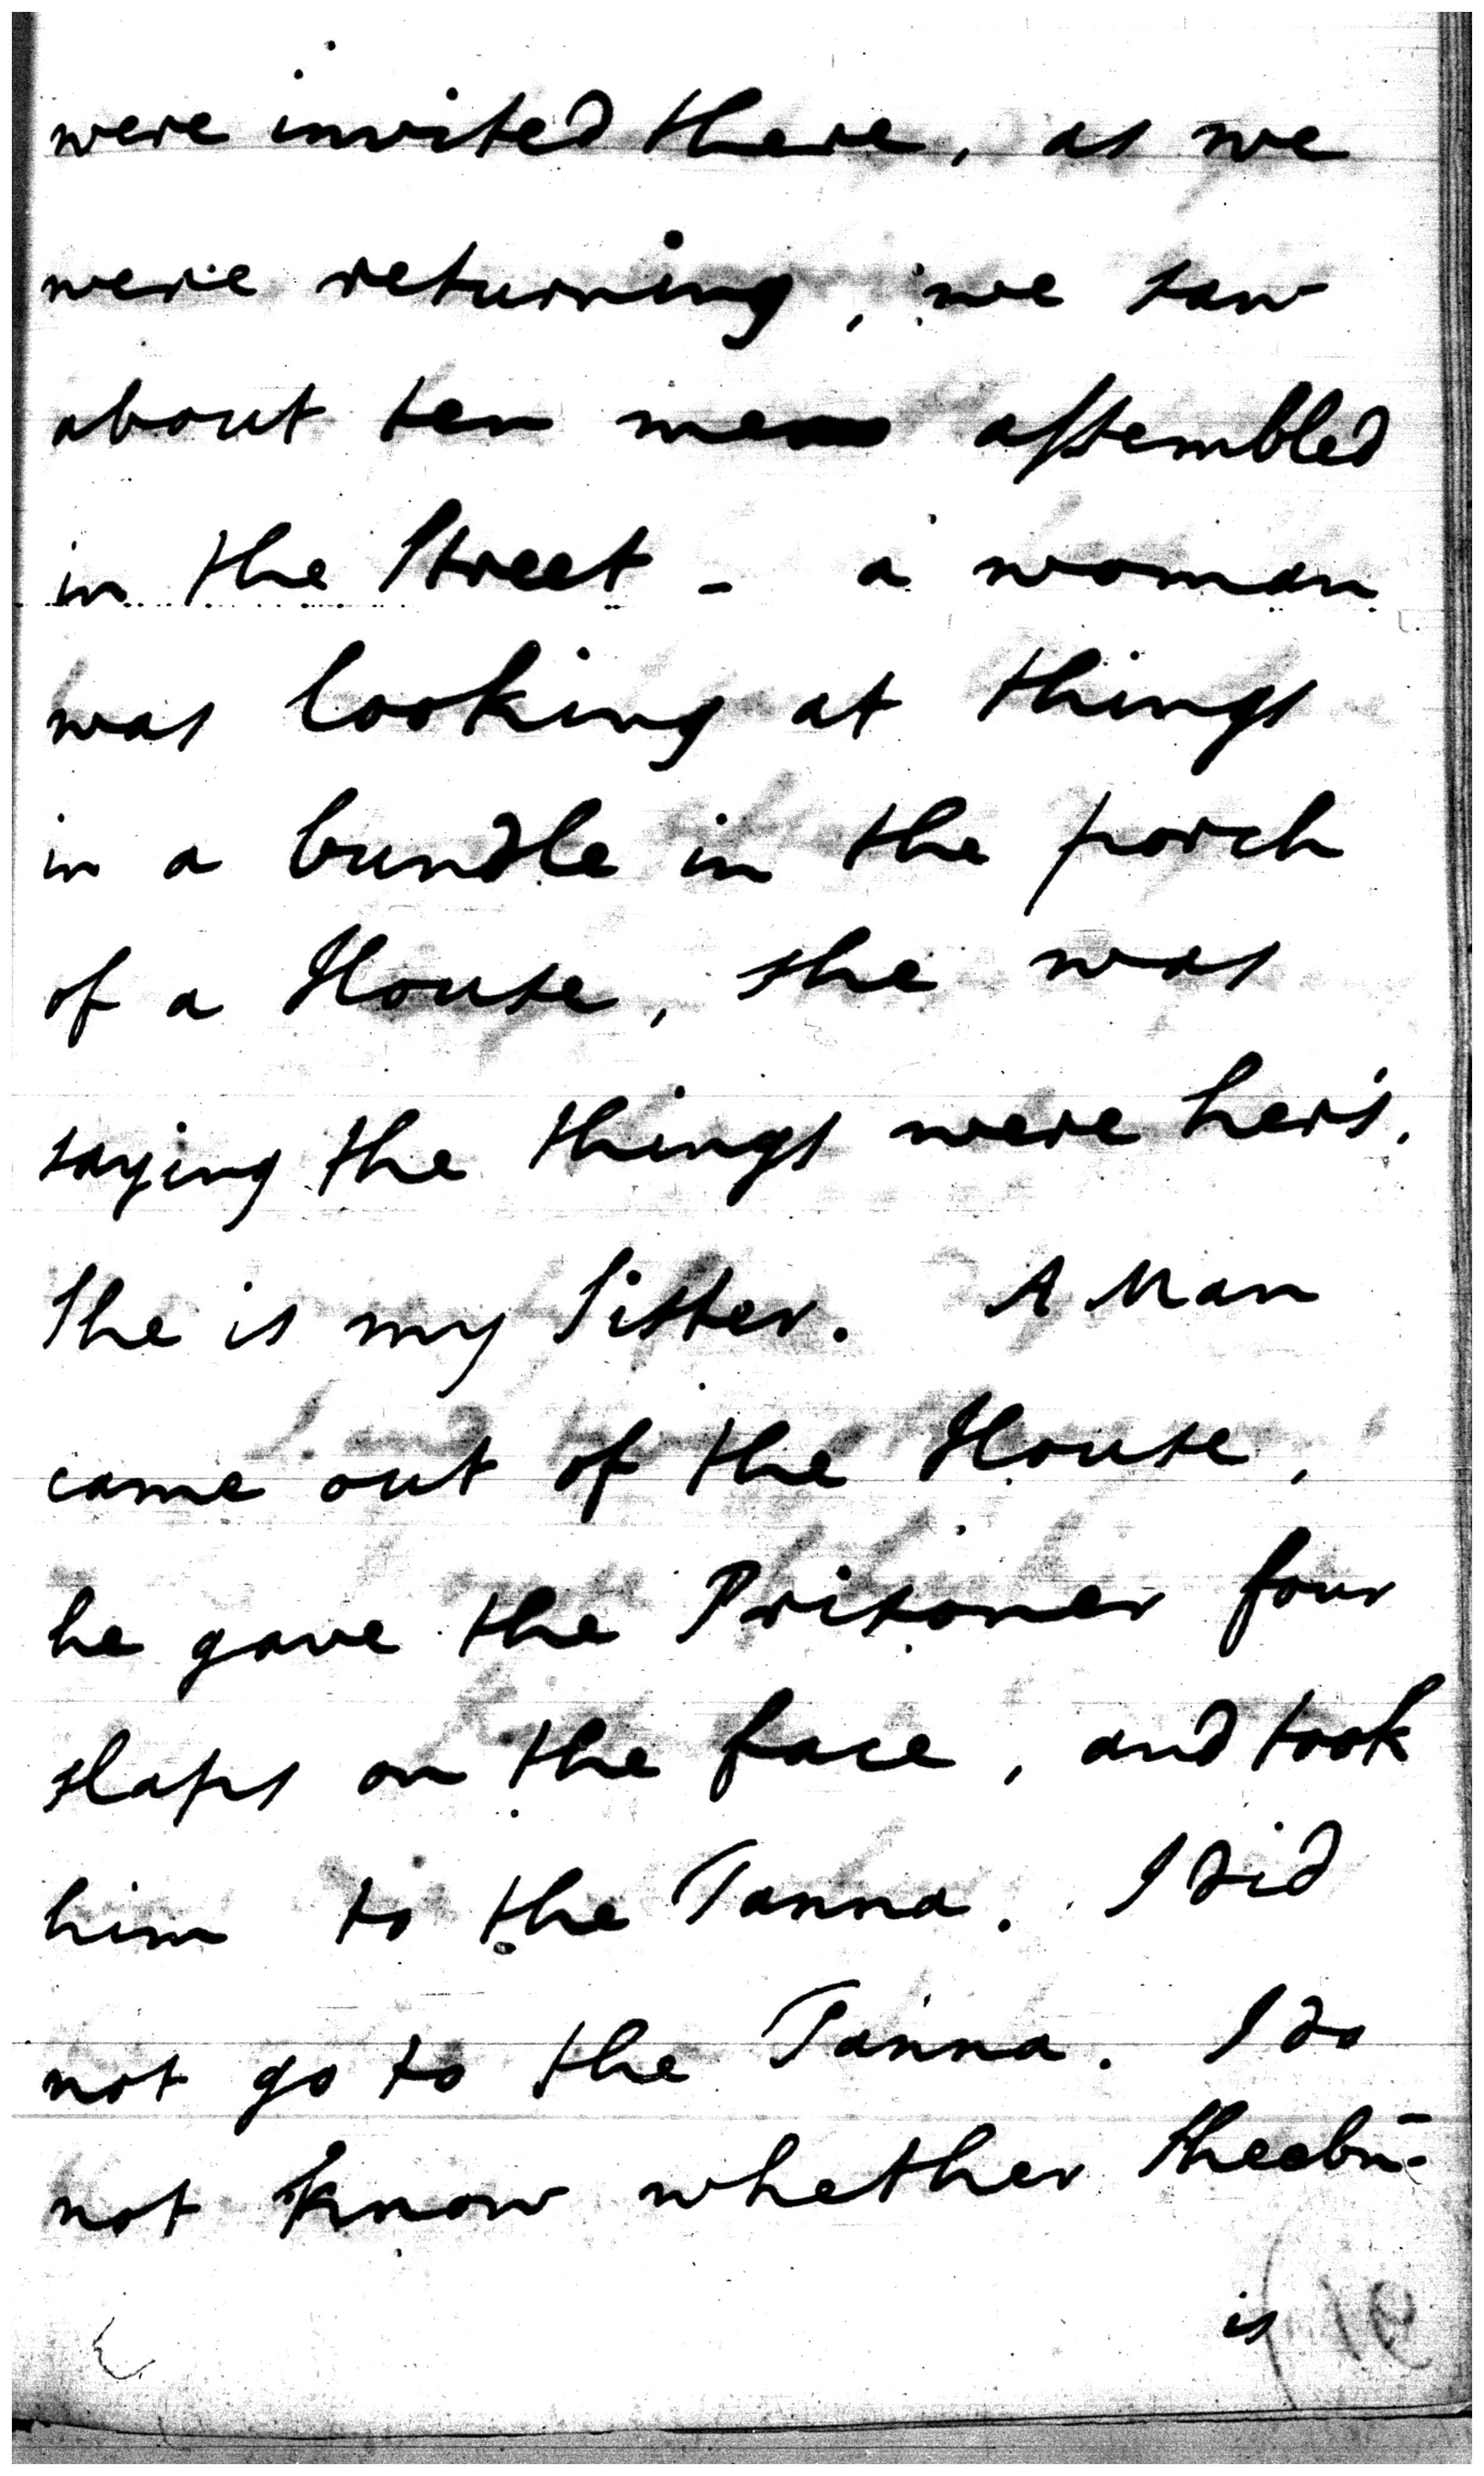 were invited there, as we
were returning, we saw
about ten men assembled
in the Street - a woman
was looking at things
in a bundle in the porch
of a House, she was
saying the things were her's.
She is my Sister. A Man
came out of the House,
he gave the Prisoner four
slaps on the face, and took
him to the Tanna. I did
not go to the Tanna. I do
not know whether Sheebu-
is